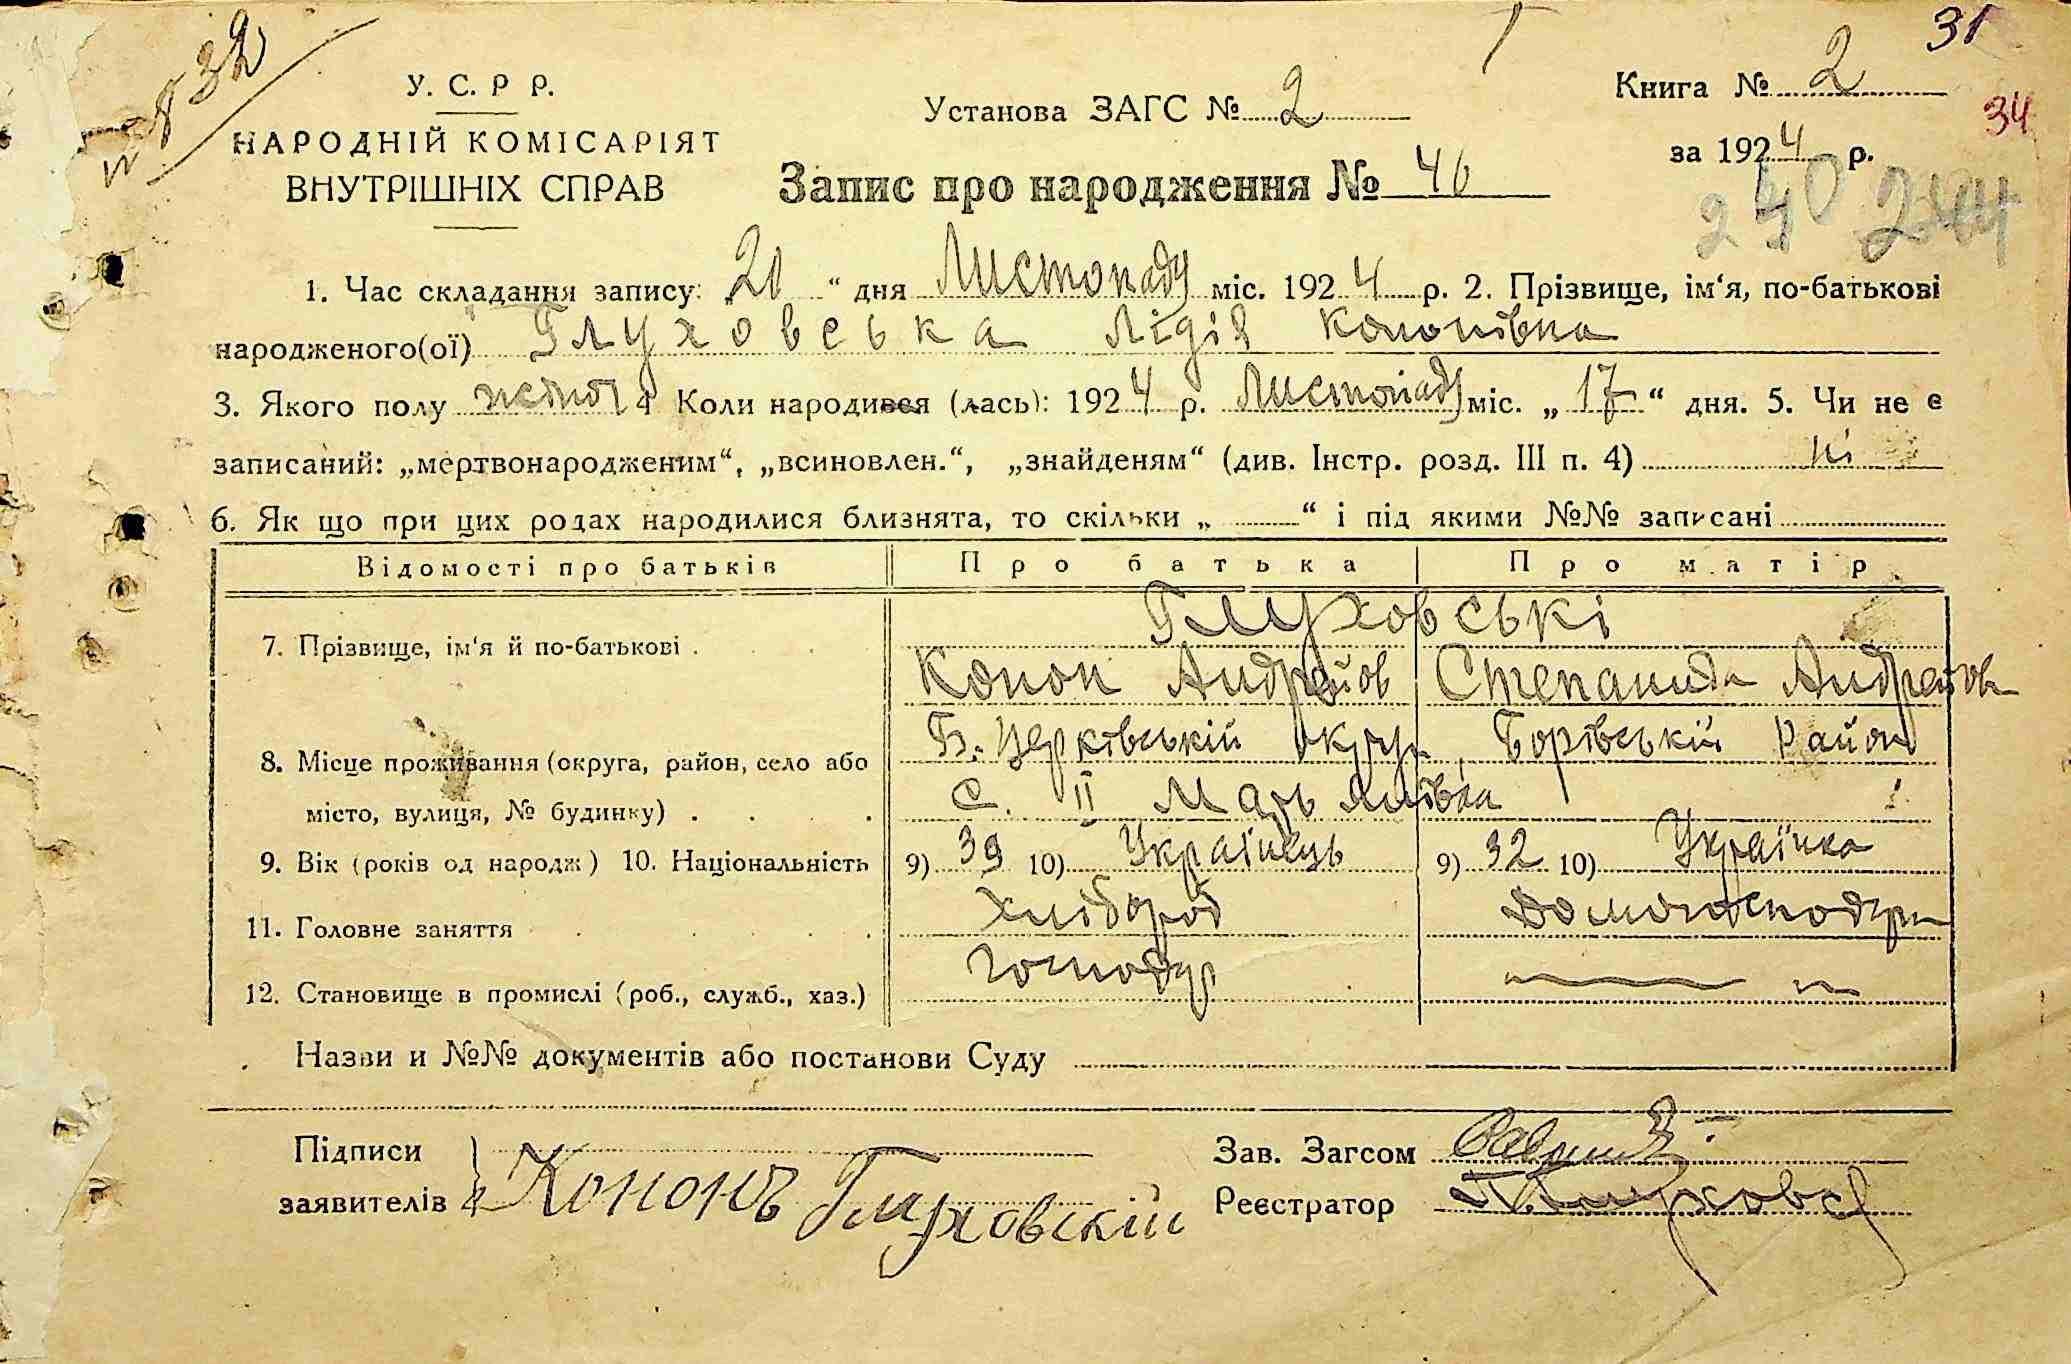 31
№ 32
У. С. Р Р.
Книга № 2
Установа ЗАГС № 2
34
НАРОДНІЙ КОМІСАРІЯТ
за 1924 р.
ВНУТРІШНІХ СПРАВ
Запис про народження № 46
240 244
1. Час складання запису: 20 “ дня Листопаду міс. 1924 р. 2. Прізвище, ім‘я, по-батькові
народженого(ої) Глуховська Лідія Кононівна
3. Якого полу жіно 4 Коли народився (лась): 1924 р. Листопаду міс. „ 17 “ дня. 5. Чи не є
записаний: „мертвонародженим“, „всиновлен.“, „знайденям“ (див. Інстр. розд. III п. 4) ні
6. Як що при цих родах народилися близнята, то скільки „ “ і під якими №№ записані
Відомості про батьків Про батька Про матір
Глуховські
7. Прізвище, ім‘я й по-батькові .
Конон Андрейов Степанида Андрейов
Б. Церківській округи, Борівській Район
8. Місце проживання (округа, район, село або
с. II Мар‘янівка
місто, вулиця, № будинку) . . . .
9. Вік (років од народж) 10. Національність 9) 39 10) Українець 9) 32 10) Українка
11. Головне заняття Хлібороб Домогосподар
12. Становище в промислі (роб., служб., хаз.) господар
Назви и №№ документів або постанови Суду
Підписи
Зав. Загсом
заявителів
Кононъ Глуховскій
Реєстратор Глуховс